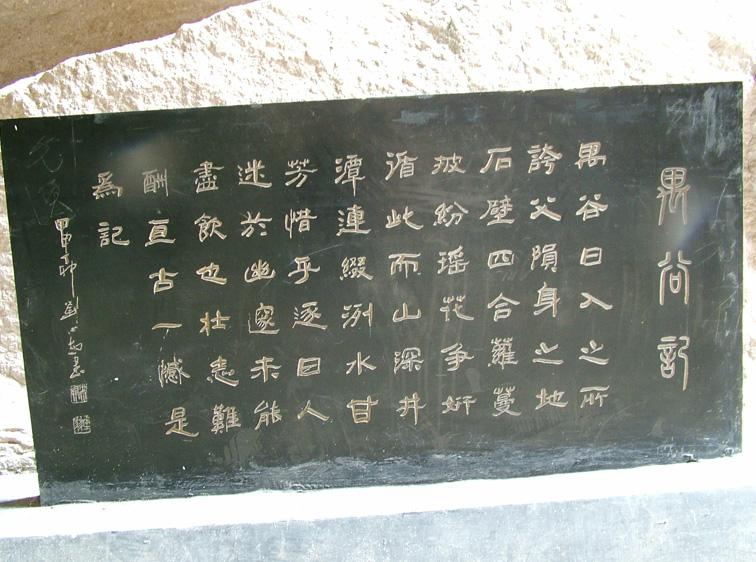 禺谷記
禺谷日入之所
誇父隕身之地
石壁四合蘿蔓
披紛瑶花争妍
循此而山深井
潭連綴洌水甘
芳惜乎逐日人
迷於幽邃未能
盡飲也壮志難
酬亘古一憾是
為記
甲申